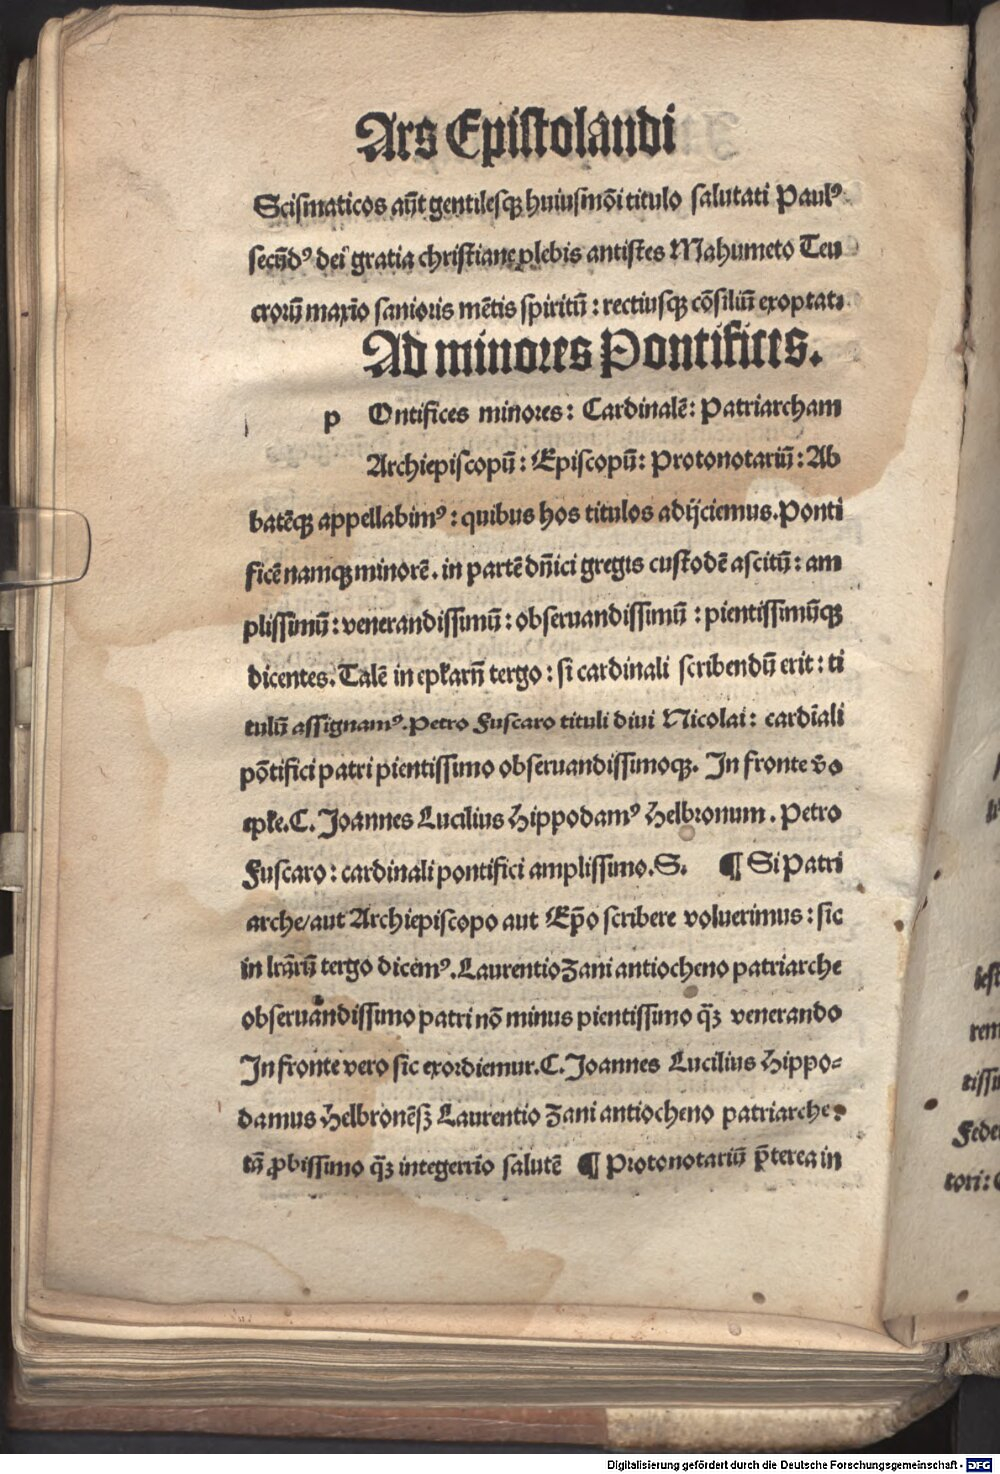 Ars Epistolandi
Scismaticos aūt gentilesqꝫ huiusmōi titulo salutati Paulꝰ
secūdꝰ dei gratia christiane plebis antistes Mahumeto Teu
crorū maxīo sanioris mētis spiritū : rectiusqꝫ cōsiliū exoptat.
Ad minores Pontifices.
p Ontifices minores : Cardinalē : Patriarcham
Archiepiscopū : Episcopū : Protonotariū : Ab
batēqꝫ appellabimꝰ : quibus hos titulos adijciemus. Ponti
ficē namqꝫ minorē . in partē dn̄ici gregis custodē ascitū : am
plissimū : venerandissimū : obseruandissimū : pientissimūqꝫ
dicentes. Talē in epꝉarū tergo : si cardinali scribendū erit : ti
tulū assignamꝰ. Petro Fuscaro tituli diui Nicolai : cardīali
pōtifici patri pientissimo obseruandissimoqꝫ. In fronte v̄o
epꝉe. C. Joannes Lucilius Hippodamꝰ Helbronum . Petro
Fuscaro : cardinali pontifici amplissimo. S. ¶ Si Patri
arche/aut Archiepiscopo aut Ep̄o scribere voluerimus : sic
in lr̄arū tergo dicemꝰ. Laurentio Zani antiocheno patriarche
obseruandissimo patri nō minus pientissimo qꝫ̄ venerando
In fronte vero sic exordiemur. C. Joannes Lucilius Hippo-
damus Helbronēsꝫ Laurentio Zani antiocheno patriarche :
tā ꝓbissimo qꝫ̄ integerrīo salutē ¶ Protonotariū p̄terea in
lest
rem
tissi
Fede
tori : C
Digitalisierung gefördert durch die Deutsche Forschungsgemeinschaft - DFG